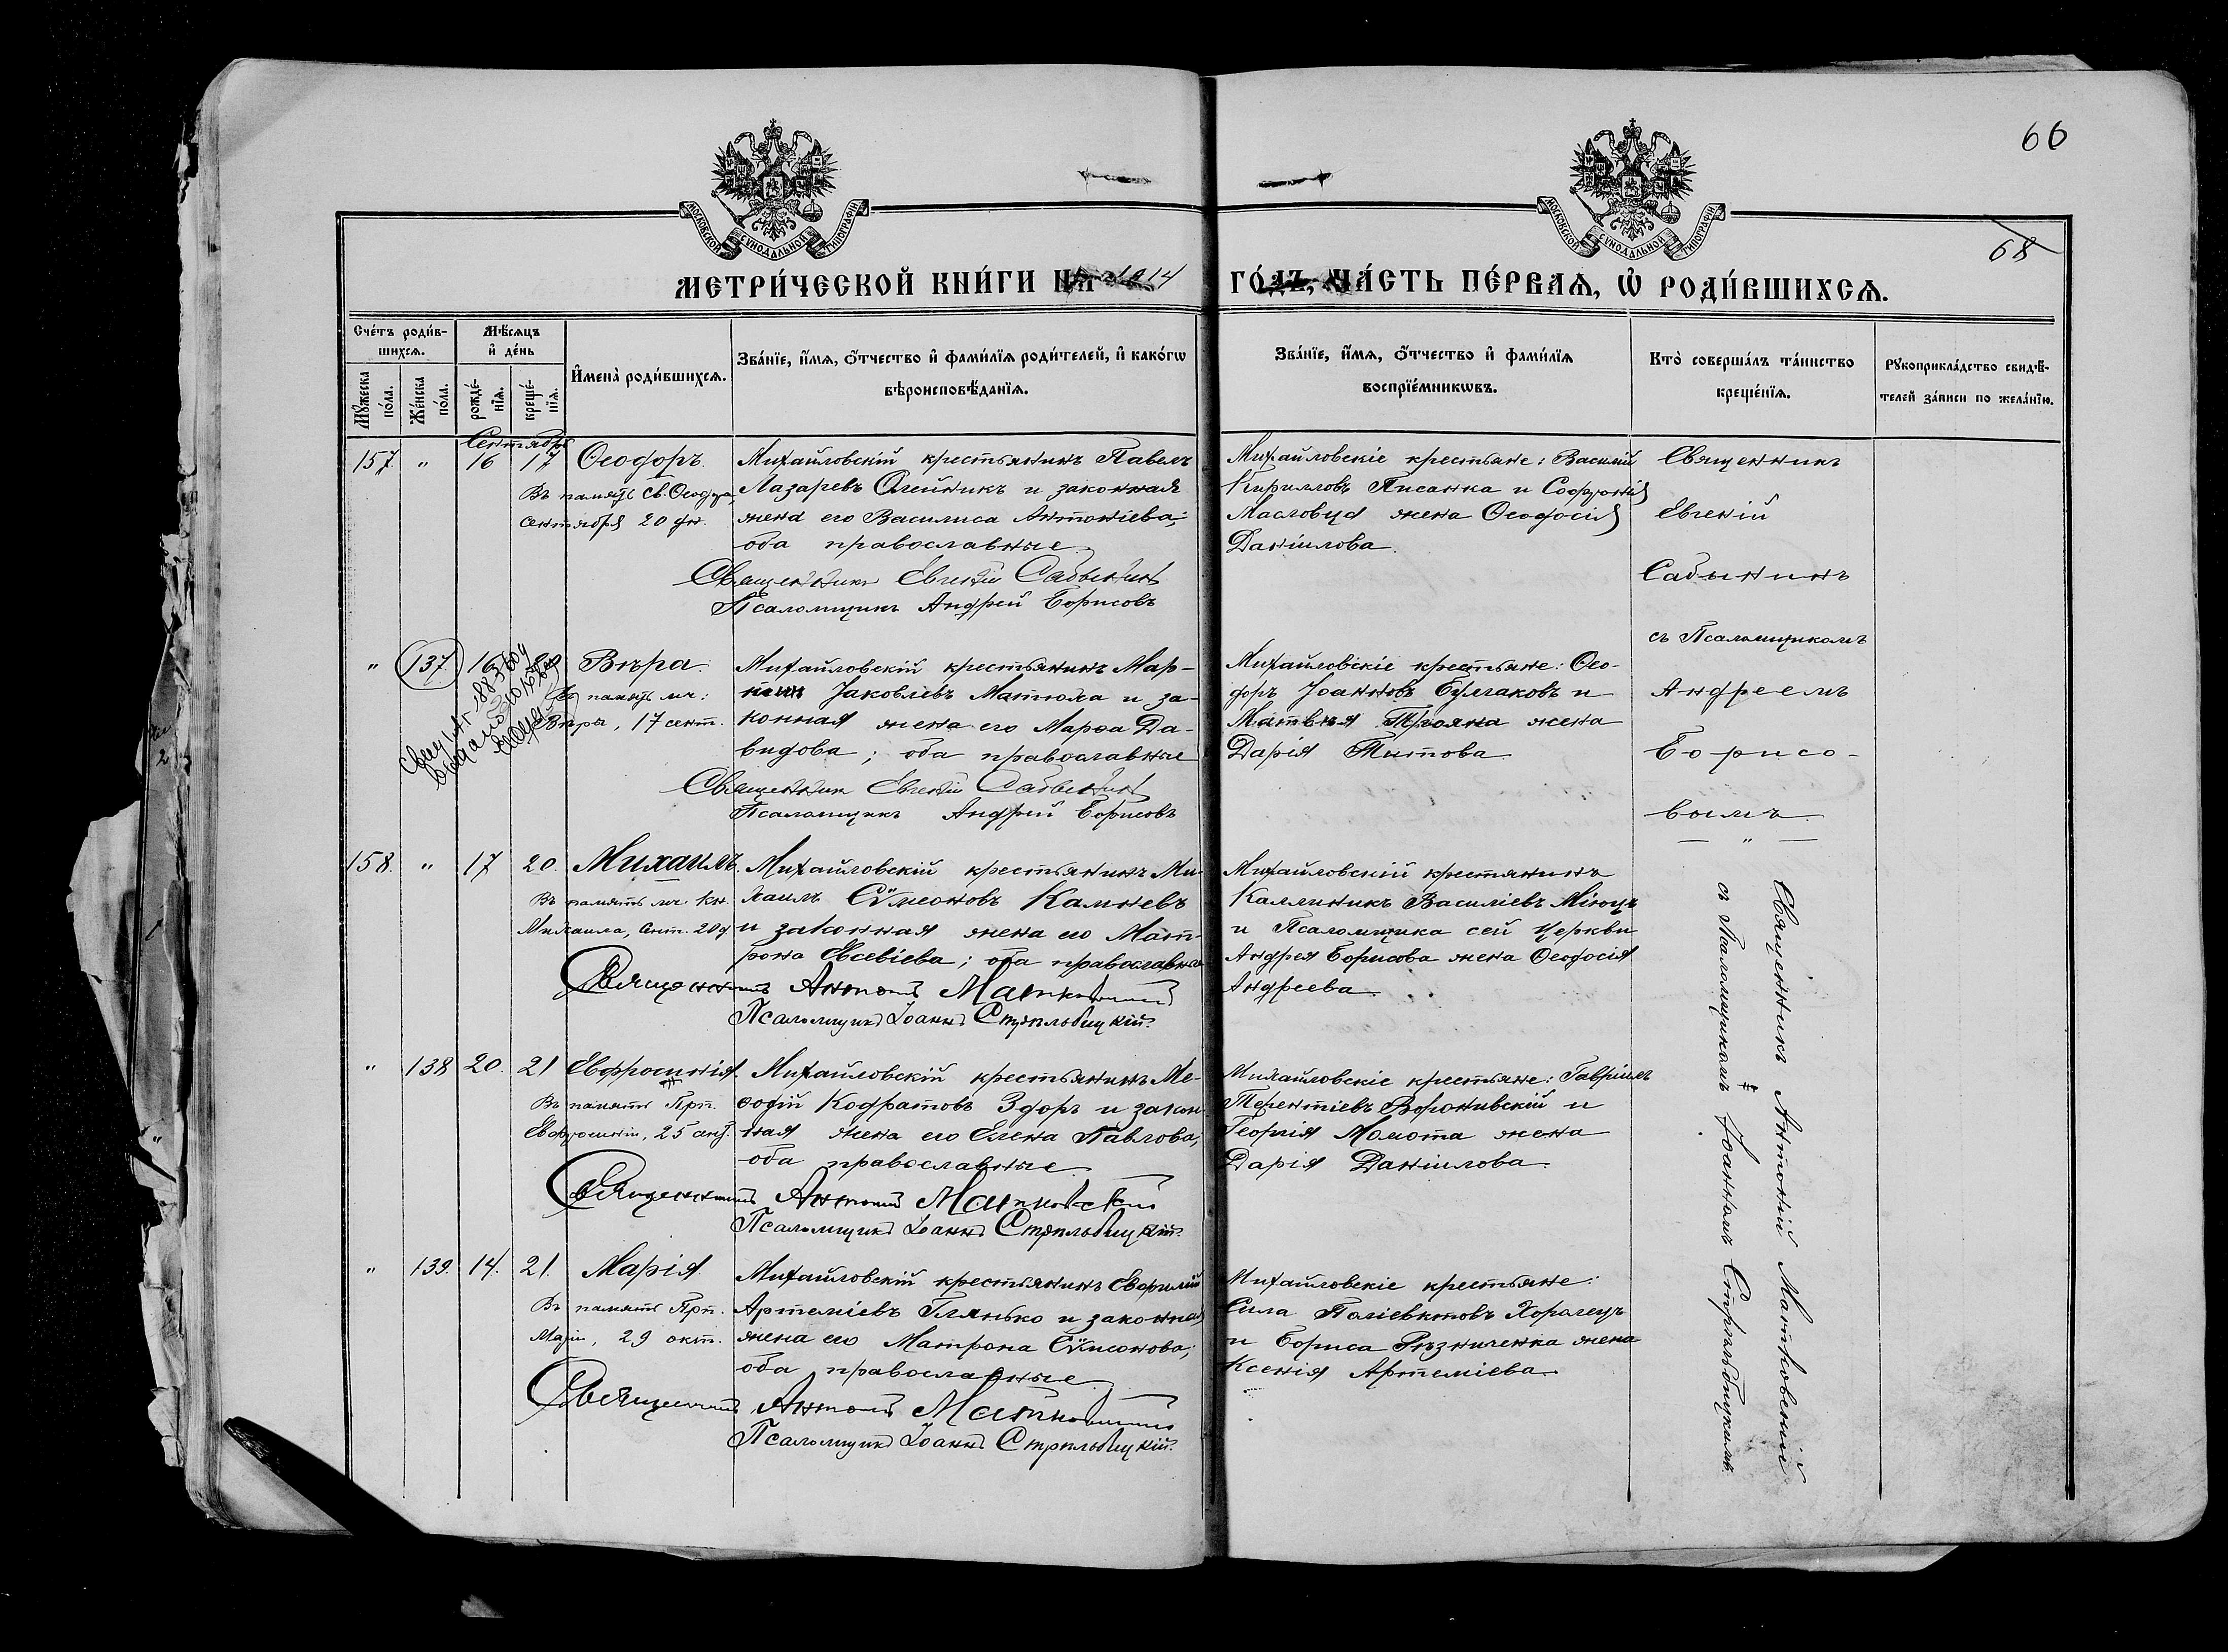 66
68
МОСКОВСКОЙ СѴНОДАЛЬНОЙ ТИПОГРАФІИ
МОСКОВСКОЙ СѴНОДАЛЬНОЙ ТИПОГРАФІИ
МЕТРИ́ЧЕСКОЙ КНИ́ГИ НА 1914 ГО́ДЪ, ЧА́СТЬ ПЕ́РВАѦ, Ѡ҆ РОДИ́ВШИХСѦ.
Сче́тъ роди́в-
шихсѧ.
Мѣ́сяцъ
и҆ де́нь
Мꙋ́жеска по́ла.
Же́нска по́ла.
рожде́-
нїѧ.
креще́-
нїѧ.
И҆мена̀ роди́вшихсѧ.
Зва́нїе, и҆́мѧ, ѻ҆́тчество и҆ фами́лїѧ роди́телей, и҆ како́гѡ
вѣроисповѣ́данїѧ.
Зва́нїе, и҆́мѧ, ѻ҆́тчество и҆ фами́лїѧ
воспрїе́мникѡвъ.
Кто̀ соверша́лъ та́инство
креще́нїѧ.
Рꙋкоприкла́дство свидѣ́-
телей за́писи по жела́нїю.
Сентябрь
157. " 16 17 Ѳеодоръ.
Въ память св. Ѳеодора,
сентября 20 дн.
Михайловскій крестьянинъ Павелъ
Лазаревъ Олейникъ и законная
жена его Василиса Антоніева;
оба православные.
Священникъ Евгеній Сабынинъ
Псаломщикъ Андрей Борисовъ
Михайловскіе крестьяне: Василій
Кирилловъ Писанка и Софронія
Масловца жена Ѳеодосія
Даніилова.
Священникъ
Евгеній
Сабынинъ
съ Псаломщикомъ
Андреемъ
Борисо-
вымъ
— " —
" 137. 16 20 Вѣра.
Въ память мч:
Вѣры, 17 сент.
Михайловскій крестьянинъ Мар-
Іаковлевъ Матюха и за-
конная жена его Марѳа Да-
видова; оба православные
Священникъ Евгеній Сабынинъ
Псаломщикъ Андрей Борисовъ
Михайловскіе крестьяне: Ѳео-
доръ Іоанновъ Булгаковъ и
Матвѣя Трояна жена
Дарія Титова.
158. " 17 20. Михаилъ.
Въ память мч. кн.
Михаила, сент. 20 д.
Михайловскій крестьянинъ Ми-
хаилъ Сѵмеоновъ Камневъ
и законная жена его Мат-
рона Евсевіева; оба православные
Священникъ Антоній Матковскій
Псаломщикъ Іоаннъ Стрѣльбицкій.
Михайловскій крестянинъ
Каллиникъ Василіевъ
и Псаломщика сей Церкви
Андрея Борисова жена Ѳеодосія
Андреева.
Священникъ Антоній Матковскій
съ Псаломщикомъ Іоанномъ Стрѣльбицкимъ.
" 138 20. 21 Евфросинія.
Въ память Прп.
Евфросиніи, 25 сент.
Михайловскій крестьянинъ Ме-
ѳодій Кодратовъ Здоръ и закон-
ная жена его Елена Павлова;
оба православные.
Священникъ Антоній Матковскій
Псаломщикъ Іоаннъ Стрѣльбицкій.
Михайловскіе крестьяне: Гавріилъ
Терентіевъ Воронивскій и
Георгія Момота жена
Дарія Даніилова.
" 139. 14. 21. Марія.
Въ память Прп.
Маріи, 29 окт.
Михайловскій крестьянинъ Евфимій
Артеміевъ Глянько и законная
жена его Матрона Сѵмеонова;
оба православные.
Священникъ Антоній Матковскій
Псаломщикъ Іоаннъ Стрѣльбицкій.
Михайловскіе крестьяне:
Сила Поліевктовъ Хоролецъ
и Бориса Рѣзниченка жена
Ксенія Артеміева.